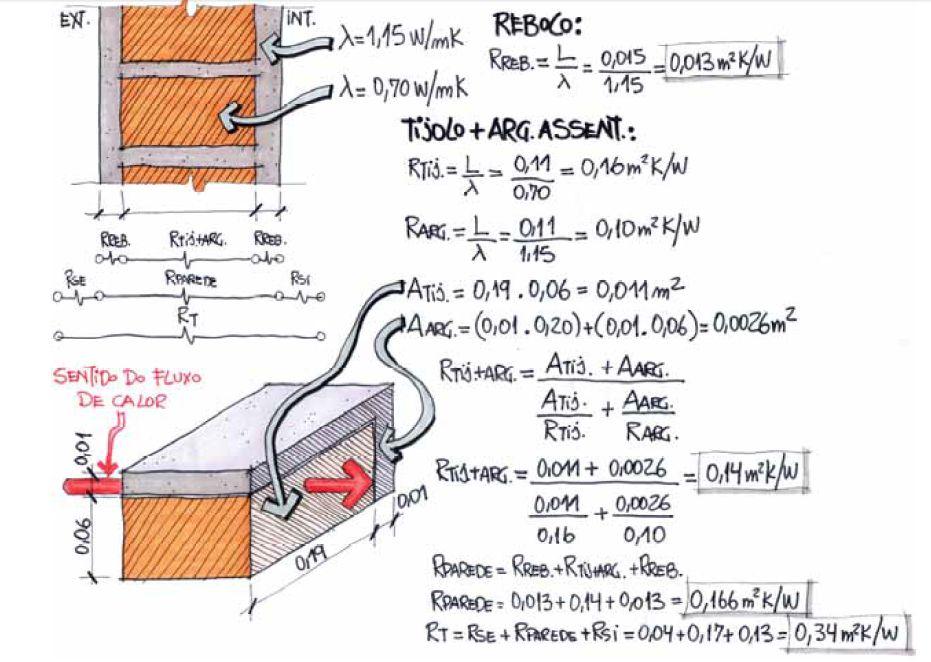 EXT.
INT.
λ=1,15 W/mK
λ= 0,70 W/mK
REBOCO:
RREB. = L/λ = 0,015/1,15 = 0,013 m²K/W
TIJOLO + ARG. ASSENT.:
RTIJ. = L/λ = 0,11/0,70 = 0,16 m²K/W
RARG. = L/λ = 0,11/1,15 = 0,10 m²K/W
RREB. RTIJ+ARG. RREB.
RSE RPAREDE RSI
RT
ATIJ. = 0,19 . 0,06 = 0,011 m²
AARG. = (0,01 . 0,20) + (0,01 . 0,06) = 0,0026 m²
RTIJ+ARG. = ATIJ. + AARG. / ATIJ./RTIJ. + AARG./RARG.
RTIJ+ARG. = 0,011 + 0,0026 / 0,011/0,16 + 0,0026/0,10 = 0,14 m²K/W
SENTIDO DO FLUXO
DE CALOR
0,01
0,06
0,19
0,01
RPAREDE = RREB. + RTIJ+ARG. + RREB.
RPAREDE = 0,013 + 0,14 + 0,013 = 0,166 m²K/W
RT = RSE + RPAREDE + RSI = 0,04 + 0,17 + 0,13 = 0,34 m²K/W